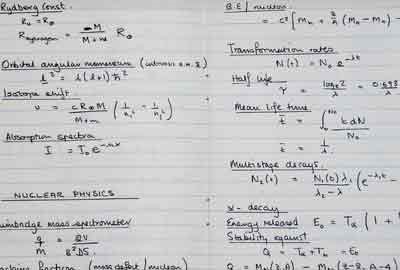 Rydberg Const.
R₀ = R∞
R_Hydrogen = M / (M + m) R∞
Orbital angular momentum
l² = l(l+1)ħ²
Isotope shift.
υ = cR∞M / (M+m) (1/n₁² - 1/n₂²)
Absorption spectra
I = I₀e^-nαx
NUCLEAR PHYSICS
Bainbridge mass spectrometer
q/m = 2V / B²
(mass defect / nucleon)
B.E / nucleon
= c² [M_n + z/A (M_H - M_n) -
Transformation rates
N(t) = N₀e^-λt
Half life
τ = log_e 2 / λ = 0.693 / λ
Mean life time
t̄ = ∫₀^N₀ t dN / N₀
t̄ = 1/λ
Multistage decays.
N₂(t) = N₁(0)λ₁ / (λ₂ - λ₁) (e^-λ₁t -
α - decay
Energy released E₀ = Tα (1 +
Stability against
Q = Tα + T_b = E₀
Q = M (Z,A) - M (Z-2, A-4)